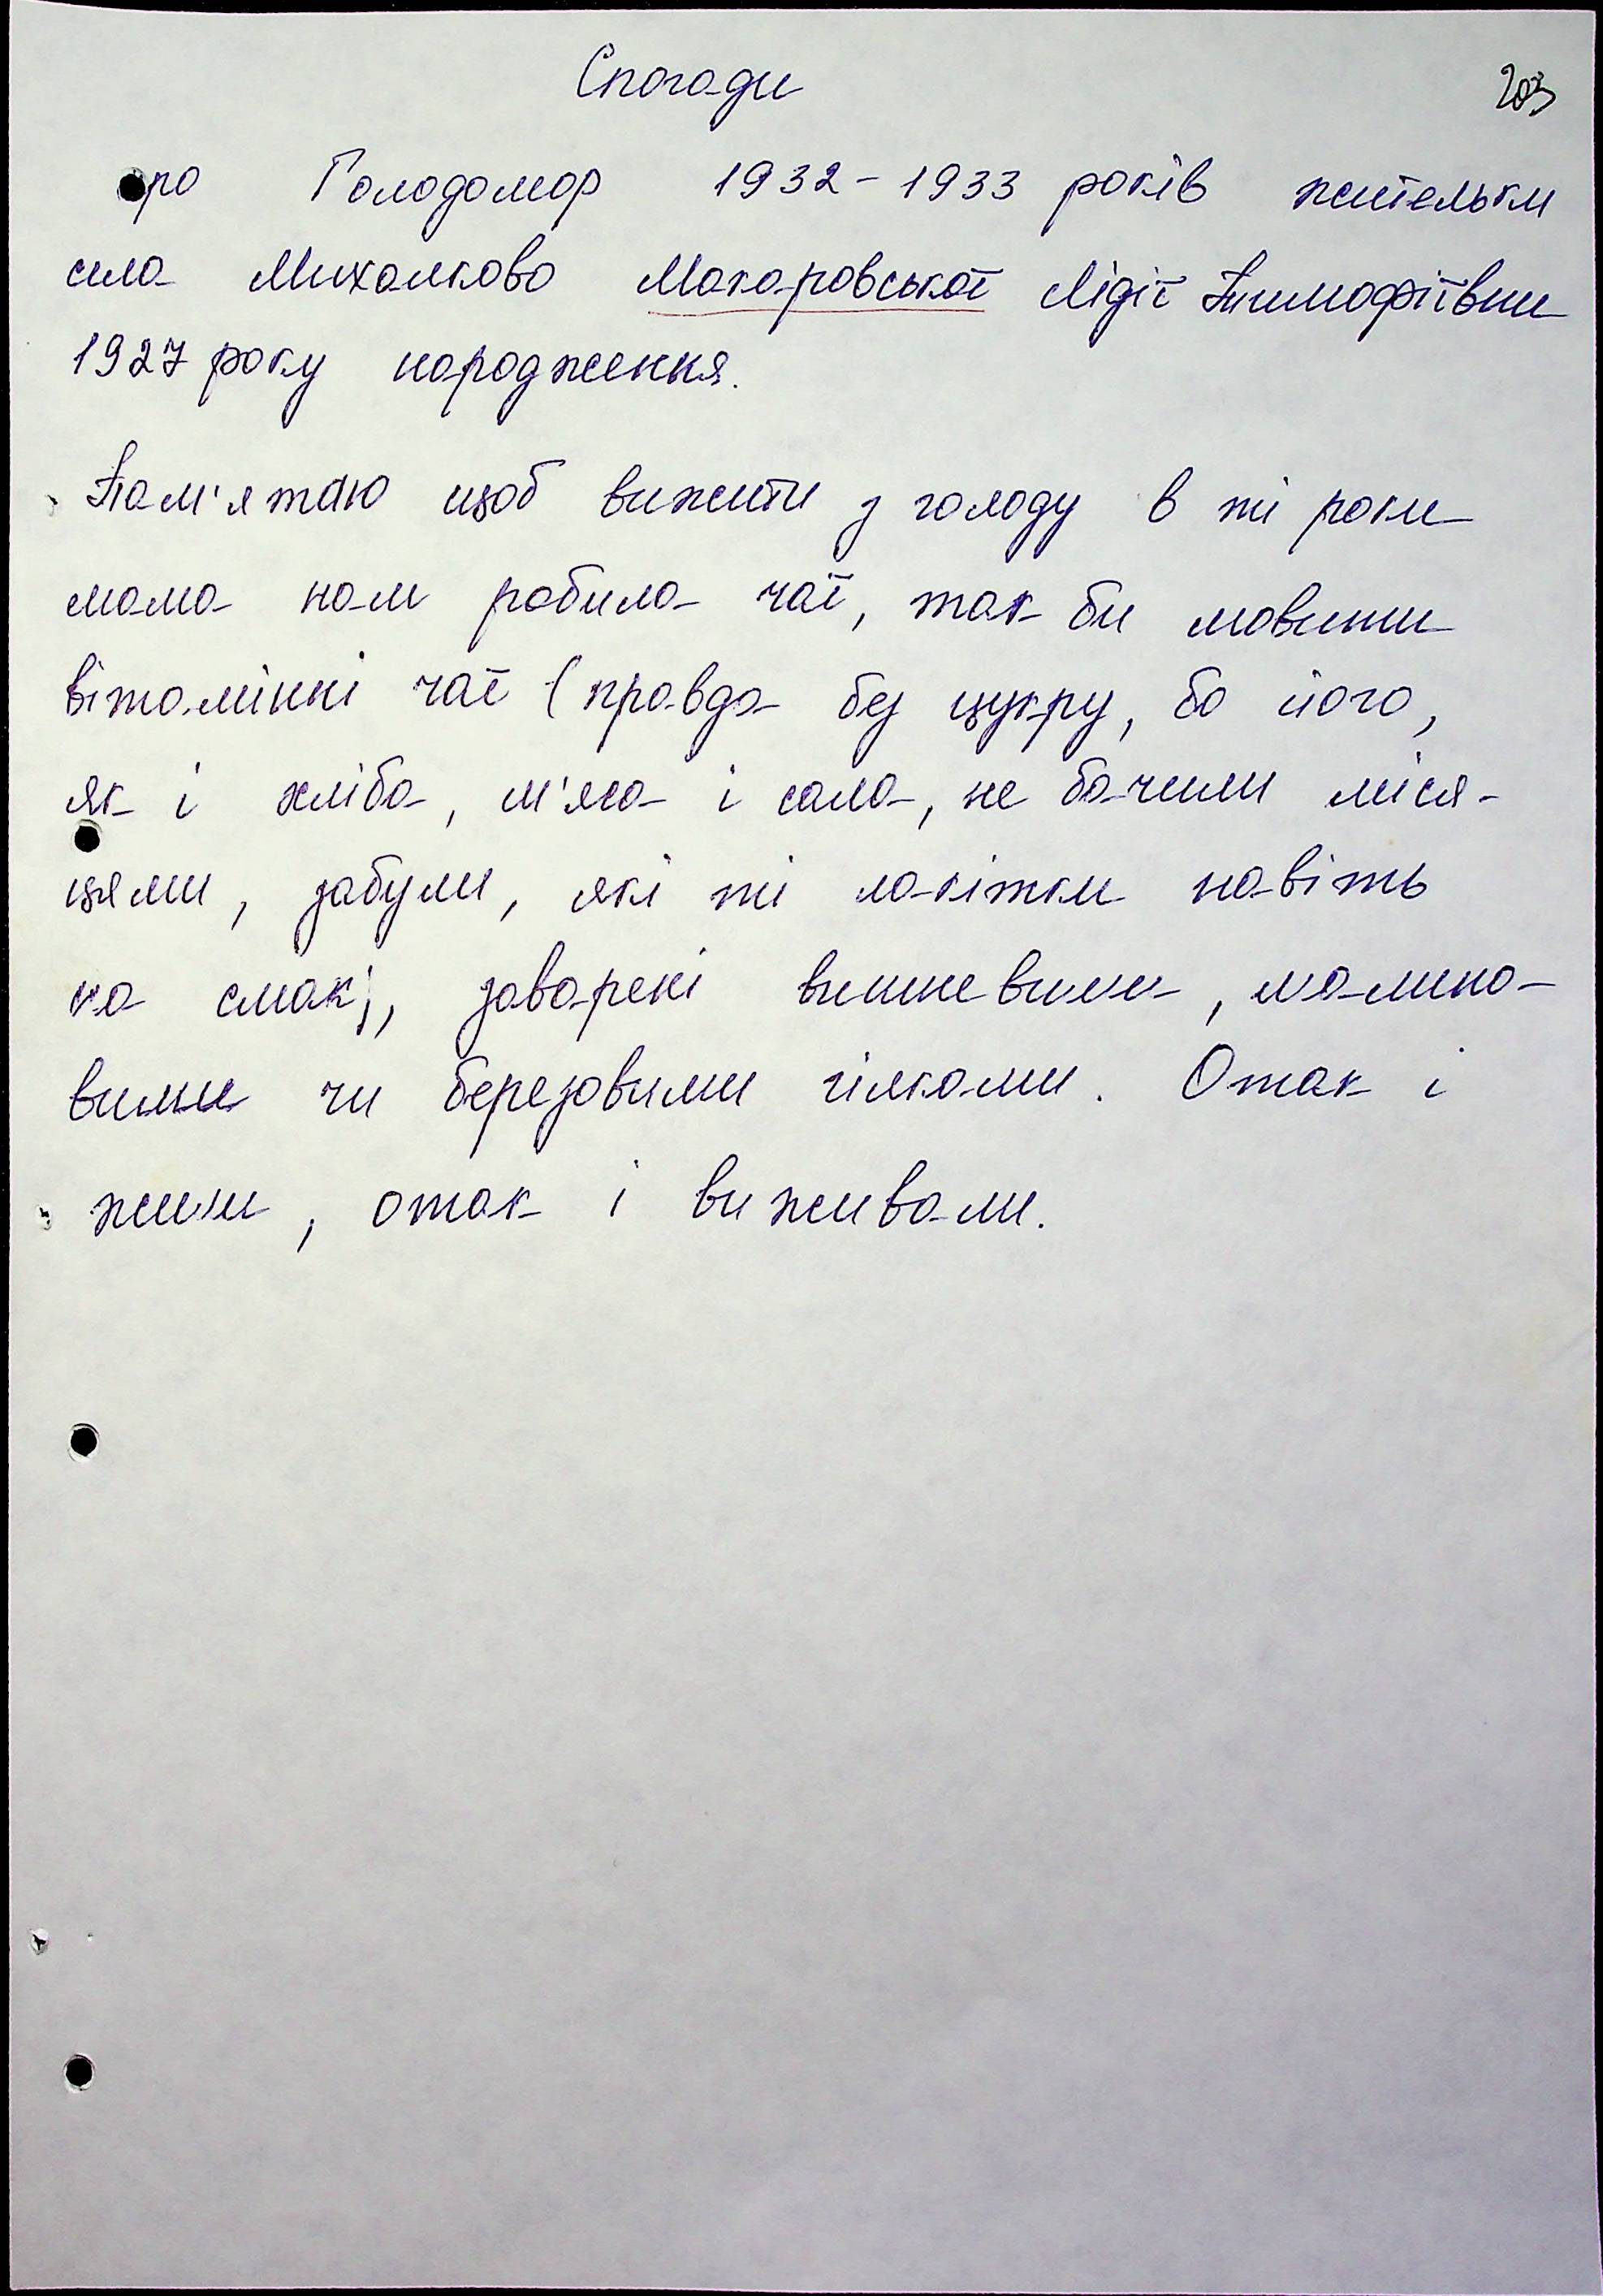 Спогади
203
про Голодомор 1932-1933 років жительки
села Михалково Макаровської Лідії Тимофіївни
1927 року народження.
Пам'ятаю щоб вижити з голоду в ті роки
мама нам робила чаї, так би мовити
вітамінні чаї (правда без цукру, бо його,
як і хліба, м'яса і сала, не бачили міся-
цями, забули, які ті лакітки навіть
на смак;, заварені вишневими, малино-
вими чи березовими гілками. Отак і
жили, отак і виживали.